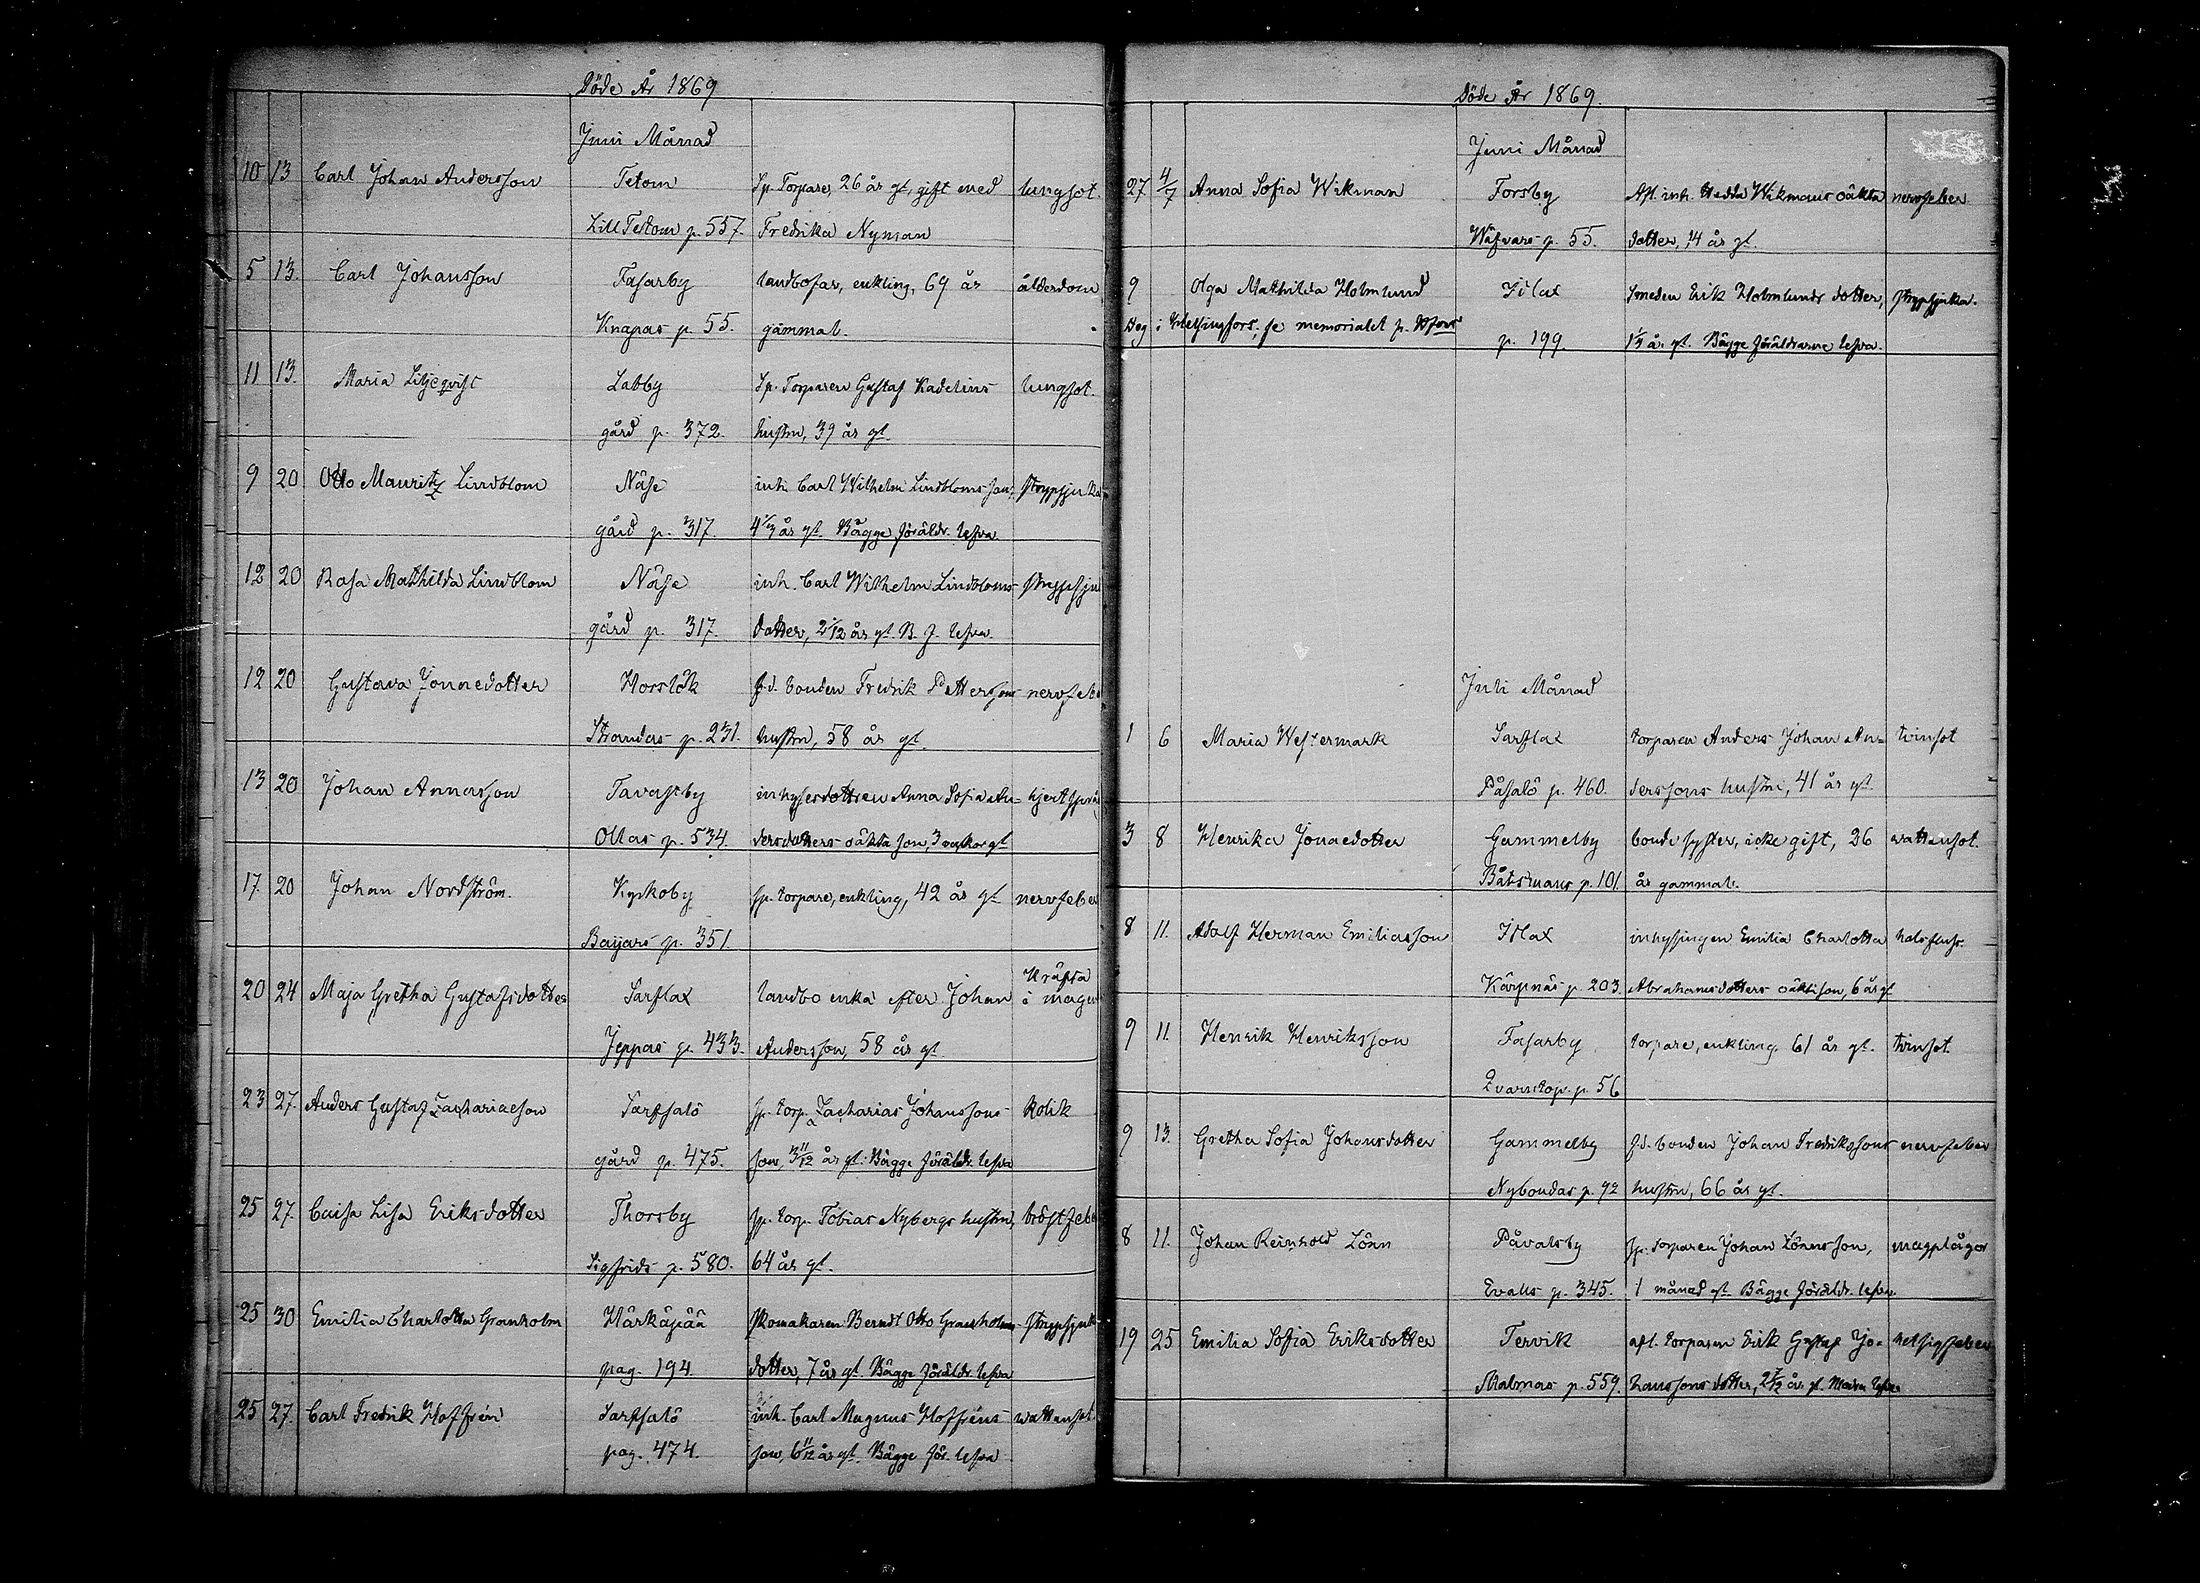 Döde År 1869
Juni Månad
10 13 Carl Johan Andersson Tetom Sp. Torpare, 26 år gl, gift med lungsot.
Lill Tetom p. 557. Fredrika Nyman
5 13. Carl Johansson Fasarby landbofar, enkling, 69 år ålderdom
Knapas p. 55. gammal.
11 13. Maria Liljeqvist Labby Sp. Torparen Gustaf Kadelins lungsot.
gård p. 372. hustru, 39 år gl.
9 20 Otto Mauritz Lindblom Näse inh. Carl Wilhelm Lindbloms son, strypsjuka
gård p. 317. 4 1/3 år gl. Bägge föräldr. lefva
12 20 Rosa Mathilda Lindblom Näse inh. Carl Wilhelm Lindbloms strypsju
gård p. 317. dotter, 2 1/12 år gl. B. f. lefva.
12 20 Gustava Jonnedotter Horslök f.d. bonden Fredrik Petterssons nervfeb
Strandas p. 231. hustru, 58 år gl.
13 20 Johan Annasson Tavastby inhysesdottren Anna Sofia An= hjertsprå
Ollas p. 534. dersdotters oäkta son, 3 veckor gl
17 20 Johan Nordström. Kyrkoby sp. torpare, enkling, 42 år gl nervfeber
Bayars p. 351.
20 24 Maja Gretha Gustafsdotter Sarflax landbo enka efter Johan Kräfta i magen
Jeppas p. 433. Andersson, 58 år gl
23 27. Anders Gustaf Zachariaeson Sarfsalö sp. torp. Zacharias Johanssons kolik
gård p. 475. son, 3 11/12 år gl. Bägge föräldr. lefva
25 27. Caisa Lisa Eriksdotter Thorsby sp. torp. Tobias Nybergs hustru, bröstfeb
Sigfrids p. 580. 64 år gl.
25 30 Emilia Charlotta Granholm Härkäpää skomakaren Berndt Otto Granholms strypsjuk
pag. 194. dotter, 7 år gl. Bägge föräldr. lefva
25 27. Carl Fredrik Hoffrén Sarfsalö inh. Carl Magnus Hoffréns wattensot.
pag. 474. son, 6 11/12 år gl. Bägge för. lefva
Döde År 1869.
Juni Månad
27 4/7 Anna Sofia Wikman Forsby Afl. inh. Hedda Wikmans oäkta nervfeber
Wäfvars p. 55. dotter, 14 år gl.
9 Olga Mathilda Holmlund Isnäs Smeden Erik Holmlunds dotter, strypsjuka.
Beg i Helsingfors, se memorialet p.
p. 199. år gl. Bägge föräldrarne lefva.
Juli Månad
1 6 Maria Westermark Sarflax torparen Anders Johan An= tvinsot
Påsalö p. 460. derssons hustru, 41 år gl.
3 8 Henrika Jonaedotter Gammelby bonde syster, icke gift, 26 wattensot.
Båtsmans p. 101. år gammal.
8 11. Adolf Herman Emiliasson inhysingen Emilia Charlotta halsfluss.
Kärpnäs p. 203. Abrahamsdotters oäkta son, 6 år gl
9 11. Henrik Henriksson Fasarby torpare, enkling. 61 år gl. tvinsot.
Qvarntop. p. 56
9 13. Gretha Sofia Johansdotter Gammelby f.d. bonden Johan Fredrikssons nervfeber
Nybondas p. 92 hustru, 66 år gl.
8 11. Johan Reinhold Lönn Påvalsby sp. torparen Johan Lönns son, magplågor
Evalls p. 345. 1 månad gl. Bägge föräldr. lefva.
19 25 Emilia Sofia Eriksdotter Tervik afl. torparen Erik Gustaf Jo= hetsigfeber
Malmas p. 559. hanssons dotter, 2 7/12 år gl. Modren lefver